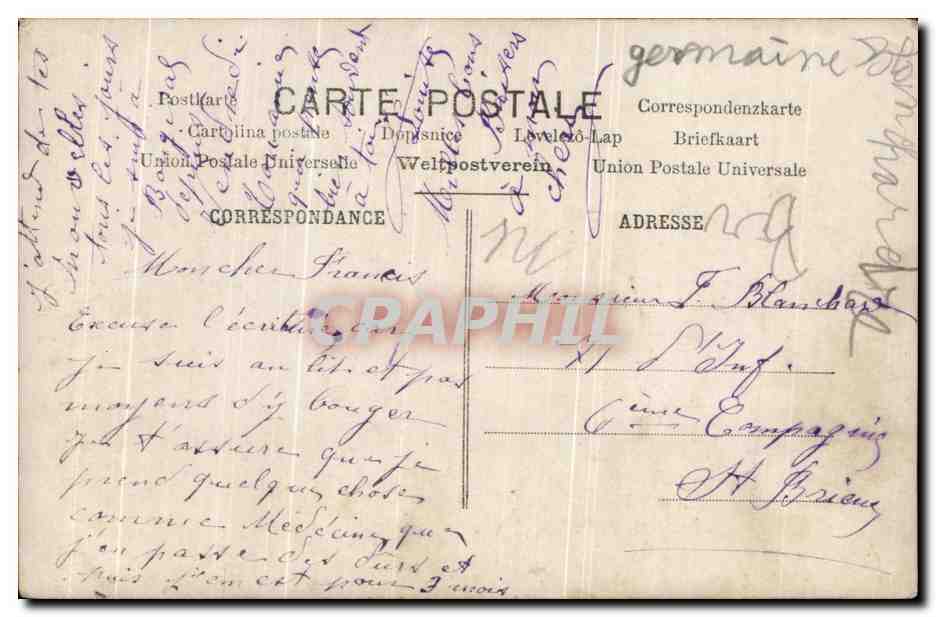 germaine
Blanchard
Postkarte
CARTE POSTALE
Correspondenzkarte
Cartolina postale
Dopisnice
Levelező-Lap
Briefkaart
Union Postale Universelle
Weltpostverein
Union Postale Universale
CORRESPONDANCE
ADRESSE
Mon cher Francis
Excuse l'écriture car
je suis au lit et pas
moyens d'y bouger
je t'assure que je
prend quelque chose
comme Médecine que
j'en passe des durs et
puis j'em est pour 3 mois
j'attend de tes
nouvelles
tous les jours
je suis à
depuis
Vendredi
à toi
à mon
cher
Monsieur F. Blanchard
71 d'Inf.
6ème Compagnie
St Brieuc
CPAPHIL